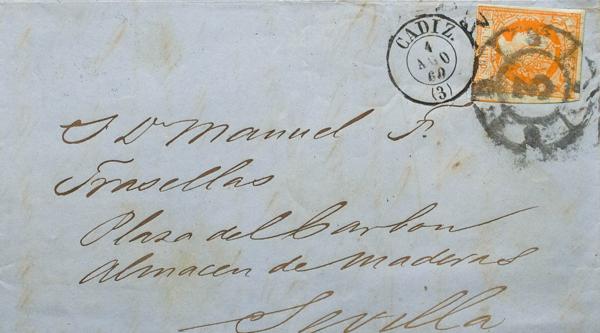 CADIZ.
1
AGO
60
(3)
2
S. Dn Manuel F.
Frasellas
Plaza del Carbon
Almacen de maderas
Sevilla